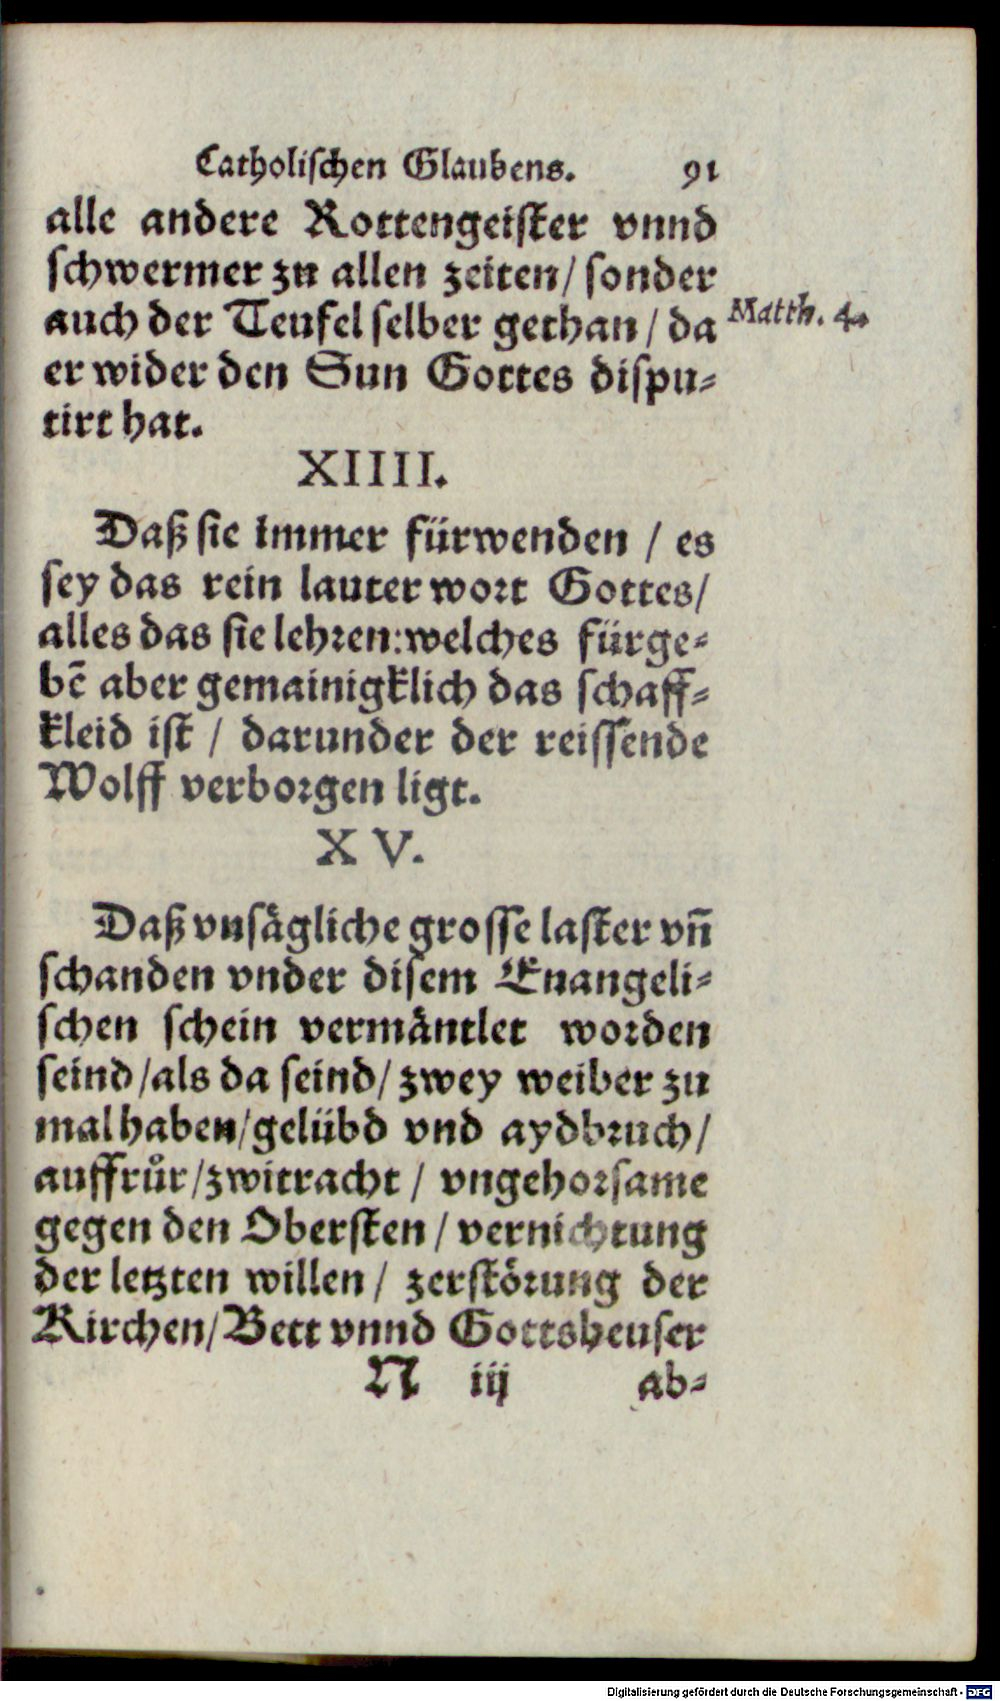 Catholischen Glaubens. 91
alle andere Rottengeister vnnd
schwermer zu allen zeiten/ sonder
auch der Teufel selber gethan / da
Matth. 4.
er wider den Sun Gottes dispu-
tirt hat.
XIIII.
Daß sie immer fürwenden / es
sey das rein lauter wort Gottes/
alles das sie lehren: welches fürge-
bē aber gemainigklich das schaff-
kleid ist / darunder der reissende
Wolff verborgen ligt.
XV.
Daß vnsägliche grosse laster vñ
schanden vnder disem Euangeli-
schen schein vermäntlet worden
seind/als da seind/ zwey weiber zu
mal haben/gelübd vnd aydbruch/
auffrůr/zwitracht / vngehorsame
gegen den Obersten / vernichtung
der letzten willen / zerstörung der
Kirchen/Bett vnnd Gottsheuser
N iij ab-
Digitalisierung gefördert durch die Deutsche Forschungsgemeinschaft - DFG